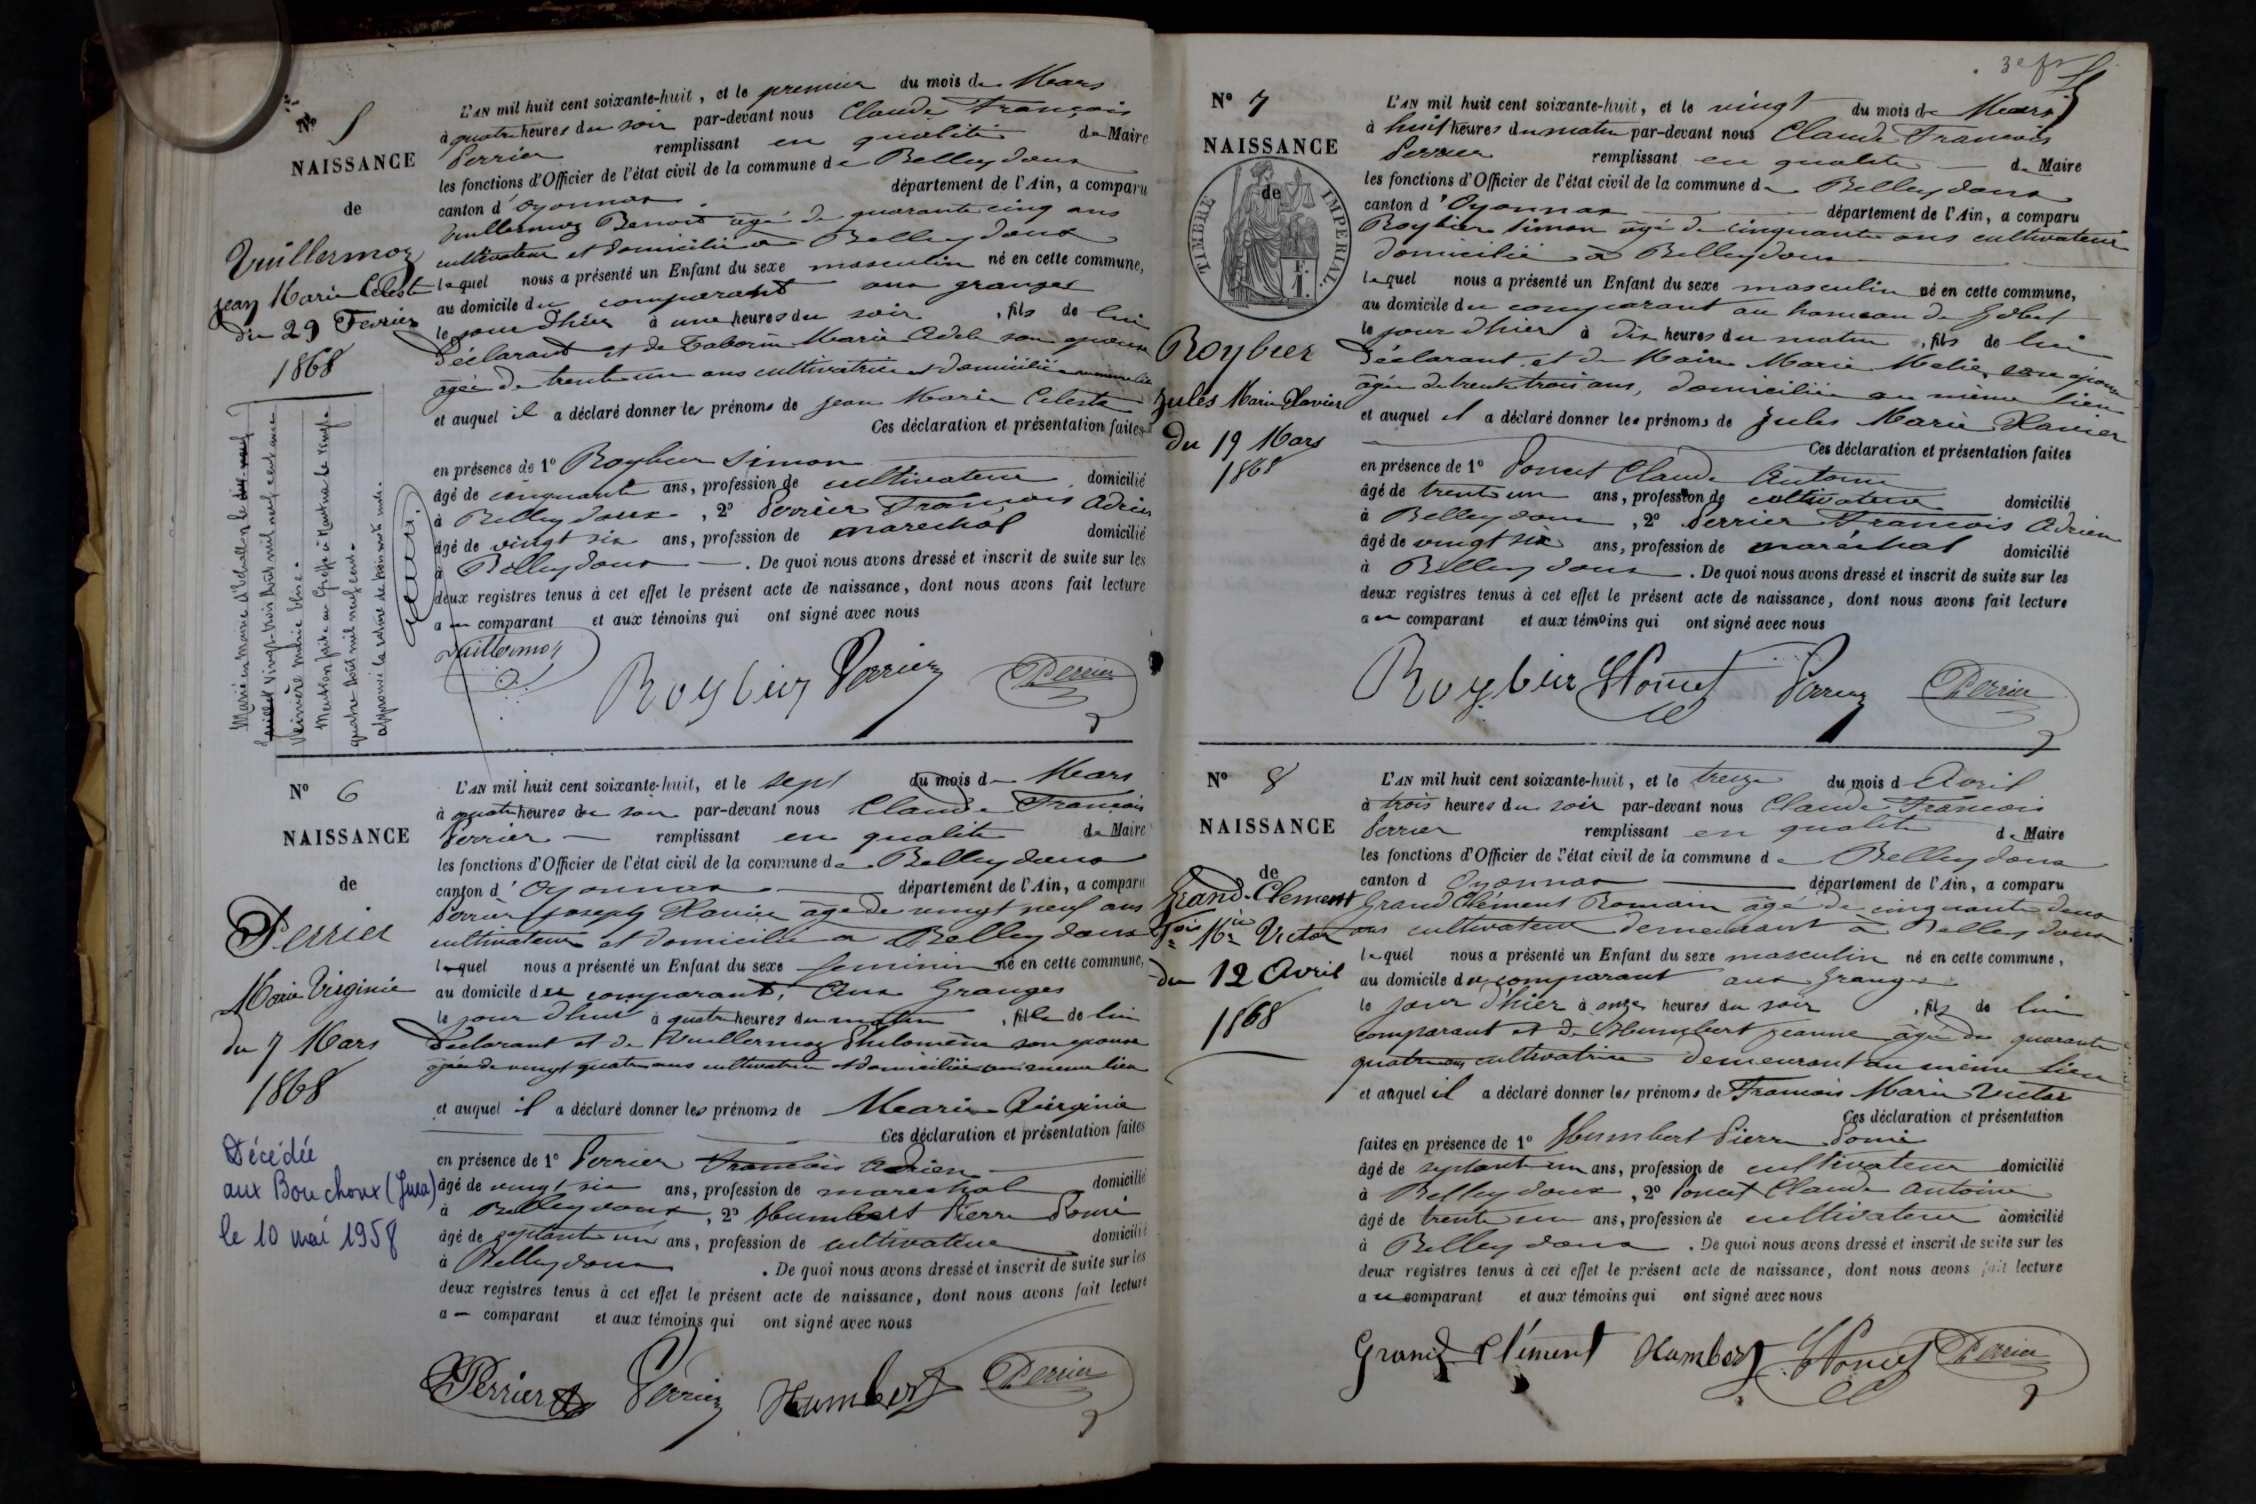 N° 5
NAISSANCE
de
Vuillermoz
Jean Marie Celeste
du 29 Fevrier
1868
L'AN mil huit cent soixante-huit, et le premier du mois de Mars
à quatre heures du soir par-devant nous Claude François
Perrier remplissant en qualité de Maire
les fonctions d'Officier de l'état civil de la commune de Belleydoux
canton d'Oyonnax département de l'Ain, a comparu
Vuillermoz Benoit agé de quarante cinq ans
cultivateur et domicilié à Belleydoux
lequel nous a présenté un Enfant du sexe masculin né en cette commune,
au domicile du comparant aux granges
le jour d'hier à une heures du soir, fils de lui
Déclarant et de Taborin Marie Adele son epouse
agée de trente un ans cultivatrice et domiciliée
et auquel il a déclaré donner les prénoms de Jean Marie Celeste
Ces déclaration et présentation faites
en présence de 1° Roybier Simon
âgé de cinquante ans, profession de cultivateur domicilié
à Belleydoux, 2° Perrier François Adrien
âgé de vingt six ans, profession de marechal domicilié
à Belleydoux. De quoi nous avons dressé et inscrit de suite sur les
deux registres tenus à cet effet le présent acte de naissance, dont nous avons fait lecture
au comparant et aux témoins qui ont signé avec nous
Vuillermoz Roybier Perrier Perrier
Marié en mairie d'Echallon le
vingt-trois Août mil neuf cent avec
Mention faite au Greffe à Nantua le vingt-
quatre Août mil neuf cent.
N° 6
NAISSANCE
de
Perrier
Marie Virginie
du 7 Mars
1868
Décédée
aux Bouchoux (Jura)
le 10 mai 1958
L'AN mil huit cent soixante-huit, et le sept du mois de Mars
à quatre heures du soir par-devant nous Claude François
Perrier remplissant en qualité de Maire
les fonctions d'Officier de l'état civil de la commune de Belleydoux
canton d'Oyonnax département de l'Ain, a comparu
Perrier Joseph Xavier age de vingt neuf ans
cultivateur et domicilié a Belleydoux
lequel nous a présenté un Enfant du sexe feminin né en cette commune,
au domicile du comparant, Aux Granges
le jour d'hui à quatre heures du matin, fille de lui
Déclarant et de Vuillermoz Philomène son epouse
agée de vingt quatre ans cultivatrice et domiciliée au meme lieu
et auquel il a déclaré donner les prénoms de Marie Virginie
Ces déclaration et présentation faites
en présence de 1° Perrier François Adrien
âgé de vingt six ans, profession de marechal domicilié
à Belleydoux, 2° Humbert Pierre
âgé de septante un ans, profession de cultivateur domicilié
à Belleydoux. De quoi nous avons dressé et inscrit de suite sur les
deux registres tenus à cet effet le présent acte de naissance, dont nous avons fait lecture
a comparant et aux témoins qui ont signé avec nous
Perrier Perrier Humbert Perrier
N° 7
NAISSANCE
de
TIMBRE IMPERIAL
Roybier
Jules Marie Xavier
du 19 Mars
1868
L'AN mil huit cent soixante-huit, et le vingt du mois de Mars
à huit heures du matin par-devant nous Claude François
Perrier remplissant en qualité de Maire
les fonctions d'Officier de l'état civil de la commune de Belleydoux
canton d'Oyonnax département de l'Ain, a comparu
Roybier Simon agé de cinquante ans cultivateur
domicilié à Belleydoux
lequel nous a présenté un Enfant du sexe masculin né en cette commune,
au domicile du comparant au hameau de Gobet
le jour d'hier à dix heures du matin, fils de lui
Déclarant et de Maire Marie Melie son epouse
agée de trente trois ans, domiciliée au même lieu
et auquel il a déclaré donner les prénoms de Jules Marie Xavier
Ces déclaration et présentation faites
en présence de 1° Poncet Claude Antoine
âgé de trente un ans, profession de cultivateur domicilié
à Belleydoux, 2° Perrier François Adrien
âgé de vingt six ans, profession de maréchal domicilié
à Belleydoux. De quoi nous avons dressé et inscrit de suite sur les
deux registres tenus à cet effet le présent acte de naissance, dont nous avons fait lecture
au comparant et aux témoins qui ont signé avec nous
Roybier Poncet Perrier Perrier
N° 8
NAISSANCE
de
Grand-Clément
fois Mie Victor
du 12 Avril
1868
L'AN mil huit cent soixante-huit, et le treize du mois d'Avril
à trois heures du soir par-devant nous Claude François
Perrier remplissant en qualité de Maire
les fonctions d'Officier de l'état civil de la commune de Belleydoux
canton d Oyonnax département de l'Ain, a comparu
Grand Clément Romain agé de cinquante deux
ans cultivateur demeurant à Belleydoux
lequel nous a présenté un Enfant du sexe masculin né en cette commune,
au domicile du comparant aux Granges
le jour d'hier à onze heures du soir, fils de lui
comparant et de Humbert Jeanne agée de quarante
quatre ans cultivatrice demeurant au même lieu
et auquel il a déclaré donner les prénoms de François Marie Victor
Ces déclaration et présentation
faites en présence de 1° Humbert Pierre
âgé de septante un ans, profession de cultivateur domicilié
à Belleydoux, 2° Poncet Claude Antoine
âgé de trente un ans, profession de cultivateur domicilié
à Belleydoux. De quoi nous avons dressé et inscrit de suite sur les
deux registres tenus à cet effet le présent acte de naissance, dont nous avons fait lecture
au comparant et aux témoins qui ont signé avec nous
Grand Clément Humbert Poncet Perrier